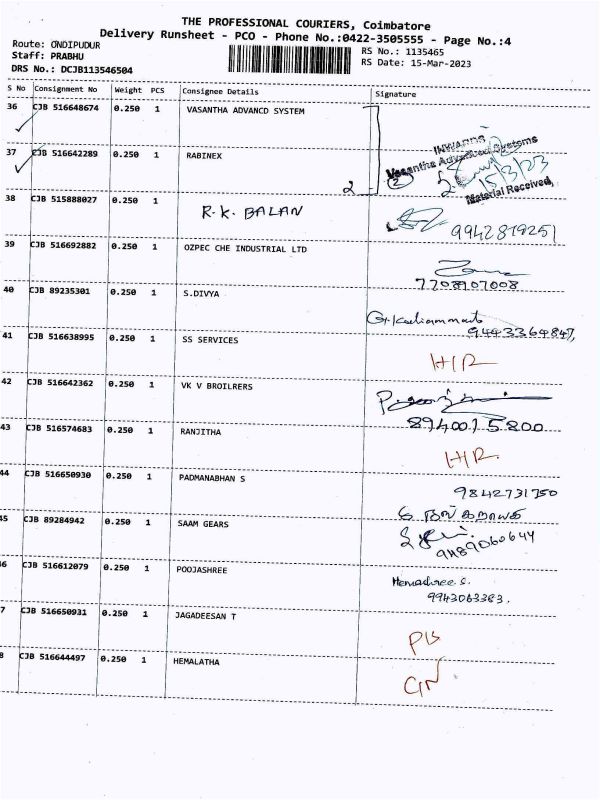 THE PROFESSIONAL COURIERS, Coimbatore
Delivery Runsheet - PCO - Phone No.:0422-3505555 - Page No.:4
Route: ONDIPUDUR
RS No.: 1135465
Staff: PRABHU
RS Date: 15-Mar-2023
DRS No.: DCJB113546504
S No Consignment No Weight PCS Consignee Details Signature
36 CJB 516648674 0.250 1 VASANTHA ADVANCD SYSTEM
INWARDS
Vasantha Advanced Systems
15/3/23
Material Received
37 CJB 516642289 0.250 1 RABINEX
2 2
38 CJB 515888027 0.250 1 R.K. BALAN
9942819251
39 CJB 516692882 0.250 1 OZPEC CHE INDUSTRIAL LTD
7708107008
40 CJB 89235301 0.250 1 S.DIVYA
9443364847,
41 CJB 516638995 0.250 1 SS SERVICES
H/R
42 CJB 516642362 0.250 1 VK V BROILRERS
8940015800
43 CJB 516574683 0.250 1 RANJITHA
H/R.
44 CJB 516650930 0.250 1 PADMANABHAN S
9842731750
45 CJB 89284942 0.250 1 SAAM GEARS
9489060644
6 CJB 516612079 0.250 1 POOJASHREE
Hemashree S.
9943063383.
7 CJB 516650931 0.250 1 JAGADEESAN T
8 CJB 516644497 0.250 1 HEMALATHA